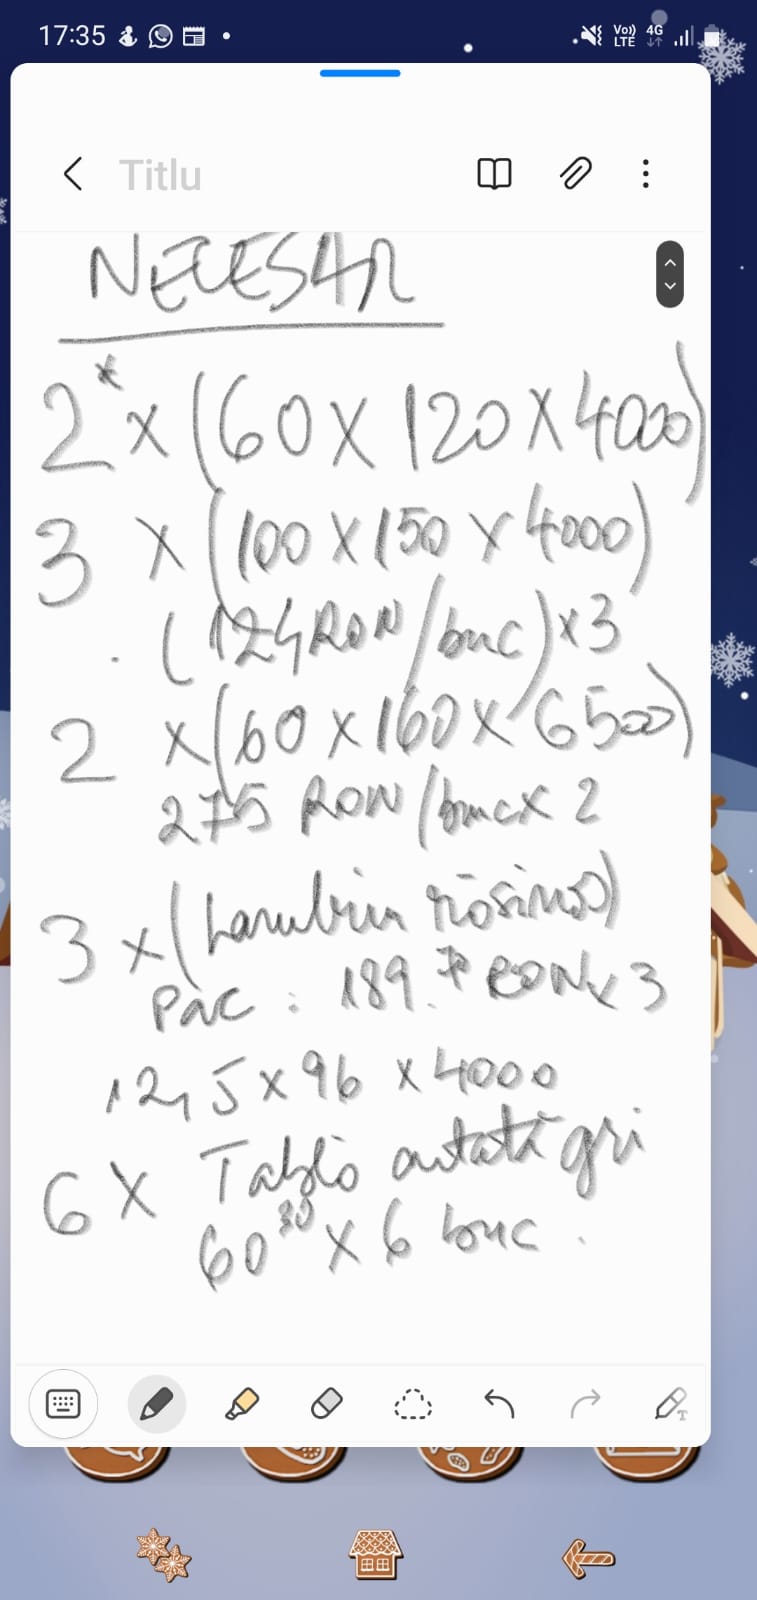 17:35
Vo)) 4G
LTE
Titlu
NECESAR
2* x (60 x 120 x 4000)
3 x (100 x 150 x 4000)
. (124 RON/buc) x 3
2 x (60 x 160 x 6500)
275 RON/buc x 2
3 x (Lambriu rășinos)
Pac : 189.70 RON x 3
12,5 x 96 x 4000
6 x Tablă cutată gri
60 30 x 6 buc.
T